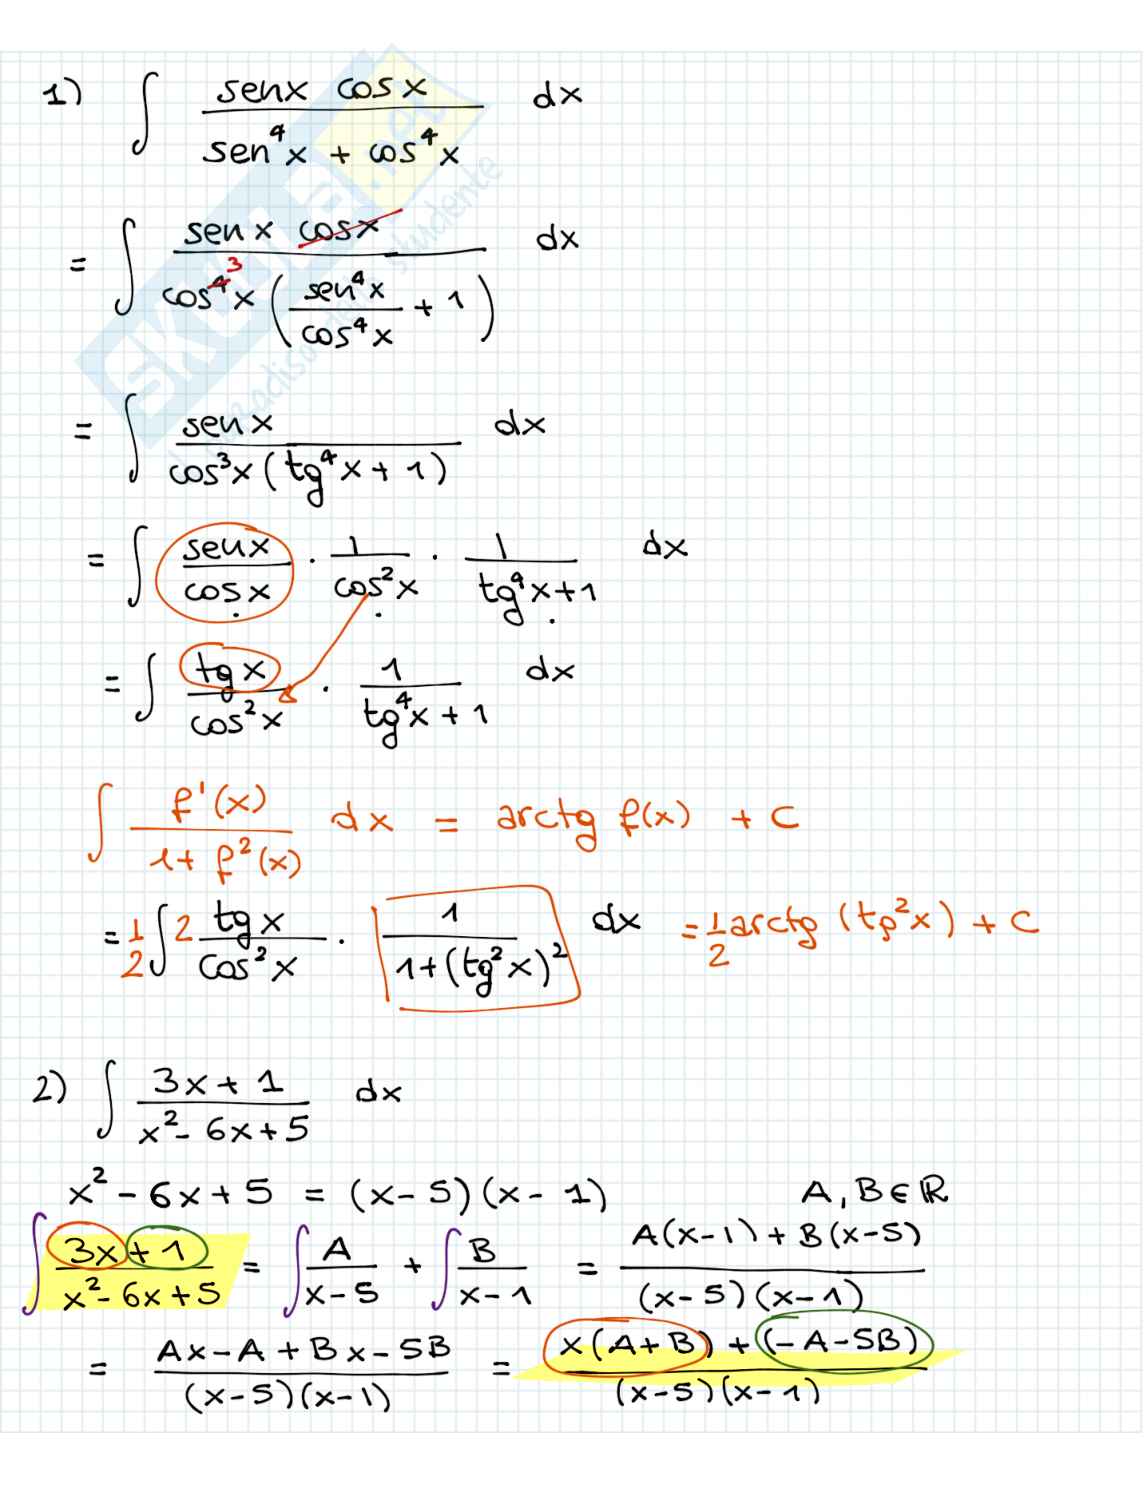 1) ∫ senx cosx / (sen⁴x + cos⁴x) dx
= ∫ senx cosx / (cos⁴ ³x (sen⁴x / cos⁴x + 1)) dx
= ∫ senx / (cos³x (tg⁴x + 1)) dx
= ∫ senx / cosx · 1 / cos²x · 1 / (tg⁴x + 1) dx
= ∫ tgx / cos²x · 1 / (tg⁴x + 1) dx
∫ f'(x) / (1 + f²(x)) dx = arctg f(x) + C
= 1/2 ∫ 2 tgx / cos²x · 1 / (1 + (tg²x)²) dx = 1/2 arctg (tg²x) + C
2) ∫ (3x + 1) / (x² - 6x + 5) dx
x² - 6x + 5 = (x - 5)(x - 1) A, B ∈ ℝ
∫ (3x + 1) / (x² - 6x + 5) = ∫ A / (x - 5) + ∫ B / (x - 1) = (A(x - 1) + B(x - 5)) / ((x - 5)(x - 1))
= (Ax - A + Bx - 5B) / ((x - 5)(x - 1)) = (x(A + B) + (-A - 5B)) / ((x - 5)(x - 1))